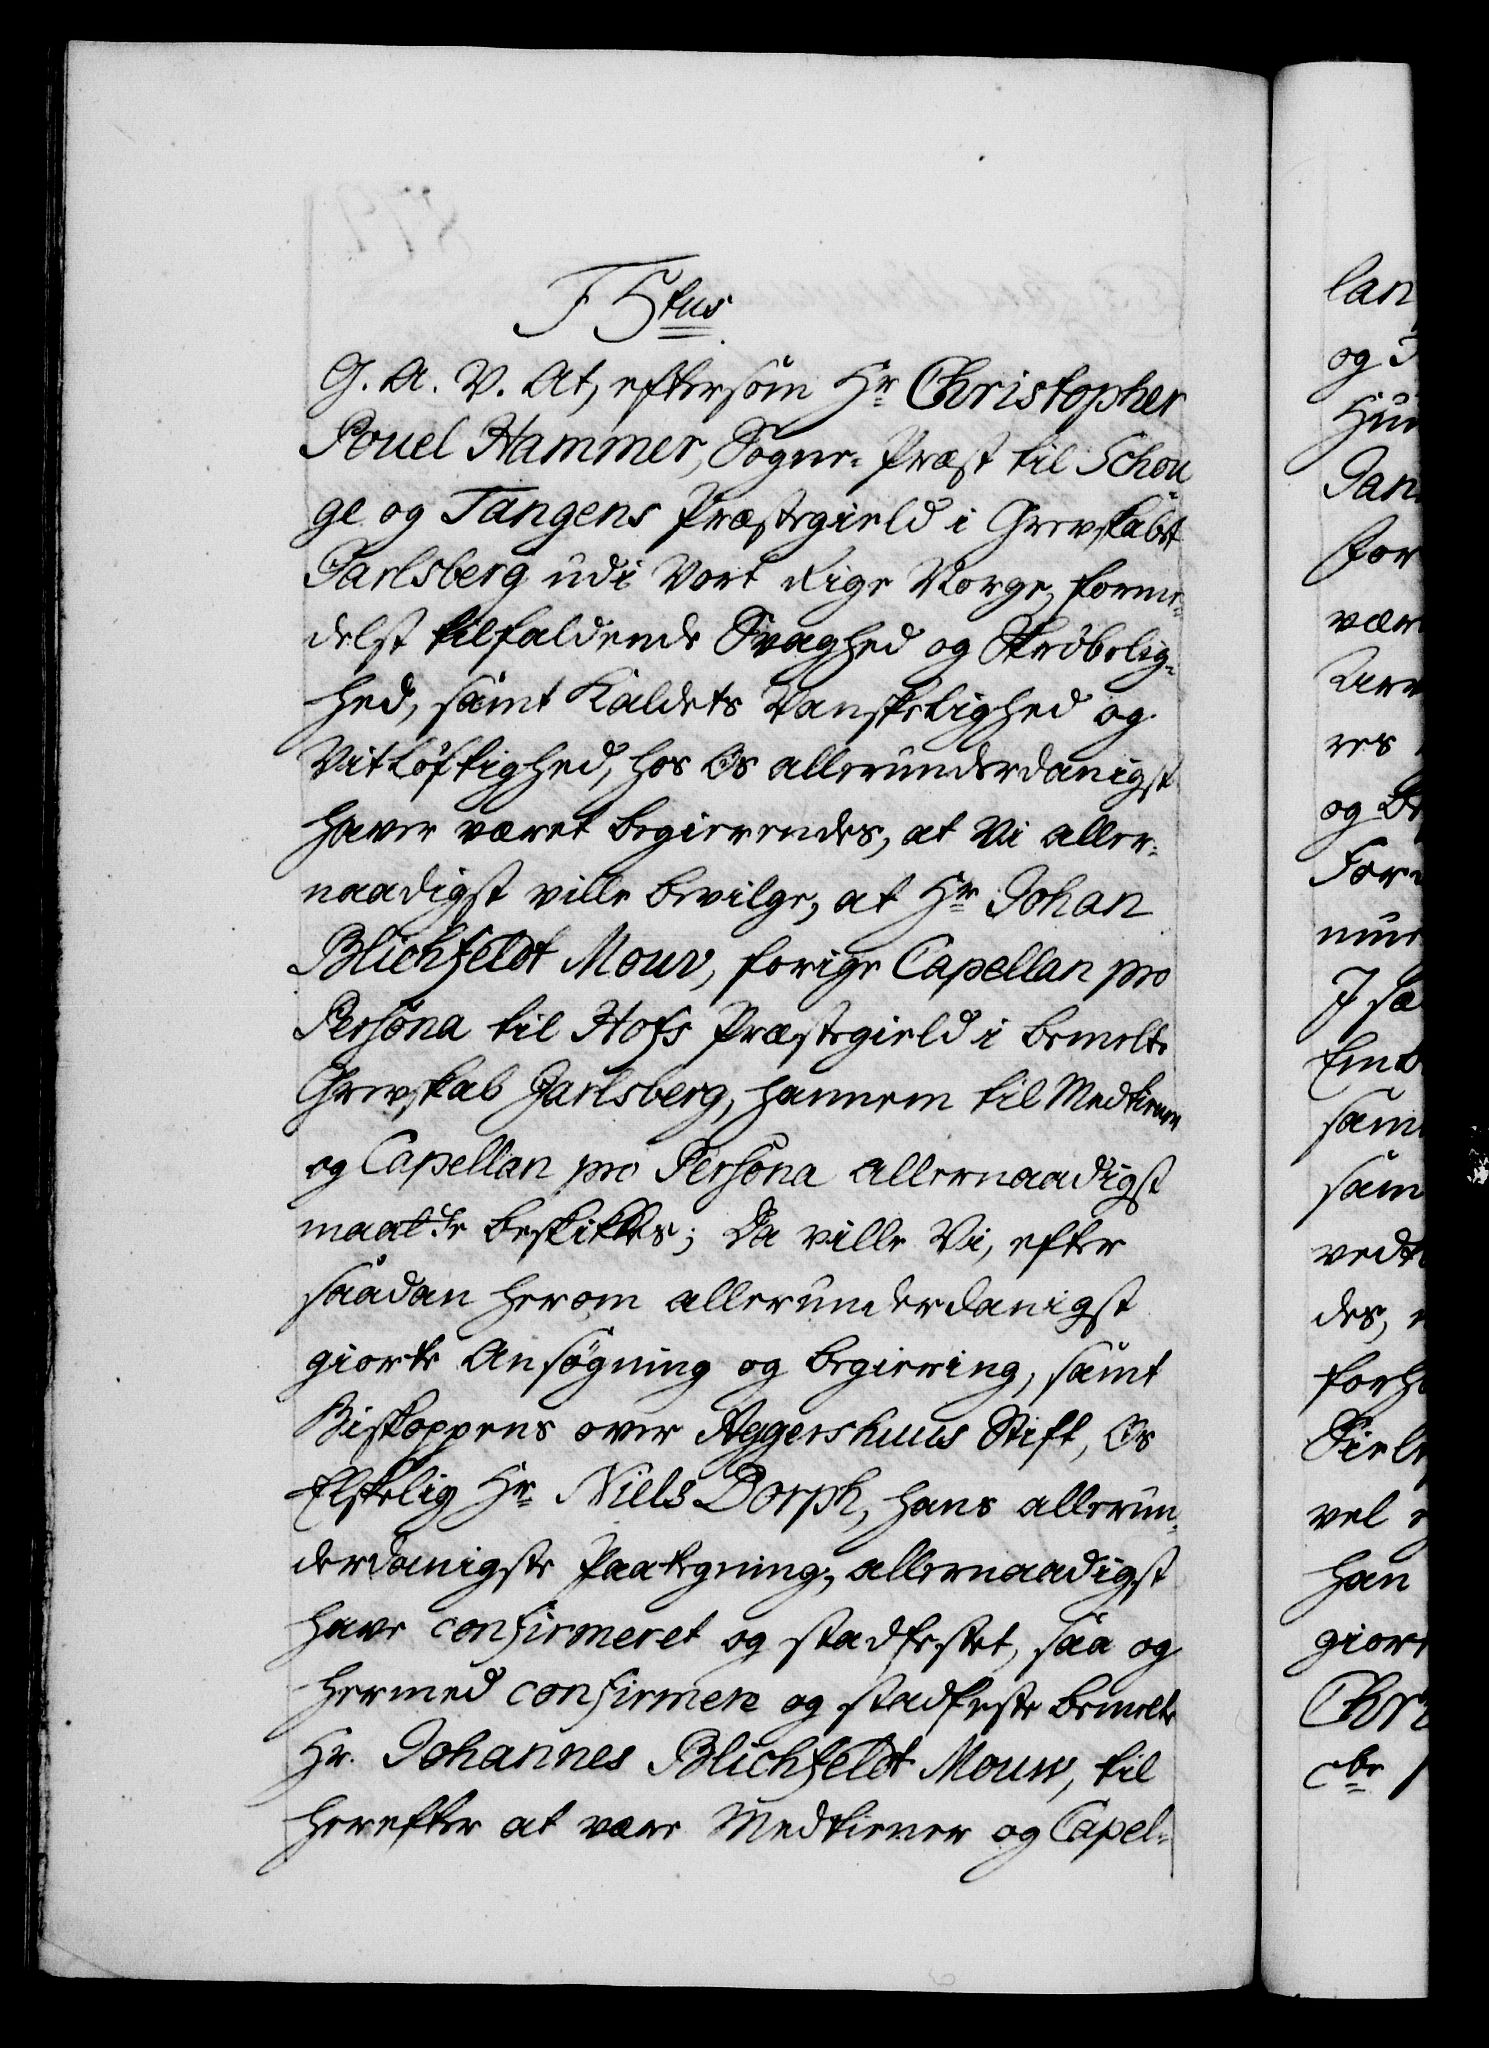 F 5tus
G. A. V. At, eftersom Hr Christopher
Pouel Hammer, Sogne-Præst til Schou
ge og Tangens Præstegield i Grevskabet
Jarlsberg udi Vort Rige Norge, forme-
delst tilfaldende Svaghed og Skrøbelig-
hed, samt Kaldets Vanskelighed og
Vitløftighed, hos Os allerunderdanigst
haver været begierendes, at Vi aller-
naadigst ville bevilge, at Hr Johan
Blichfeldt Mouw, forige Capellan pro
Persona til Hofs Præstegield i bemelte
Grevskab Jarlsberg, hannem til Medtienere
og Capellan pro Persona allernaadigst
maatte beskikkes; Da ville Vi, efter
saadan herom allerunderdanigst
giorte Ansøgning og begiering, samt
Biskoppens over Aggershuus Stift, Os
Elskelig Hr Niels Dorph, hans allerun-
derdanigste Paategning, allernaadigst
have confirmeret og stadfestet, saa og
hermed confirmere og stadfeste bemelte
Hr. Johannes Blichfeldt Mouw, til
herefter at være Medtiener og Capel-
lan
og
Hu
for
vær
res
og Be
sam
sam
des,
forh
vel
han
giort
Chr